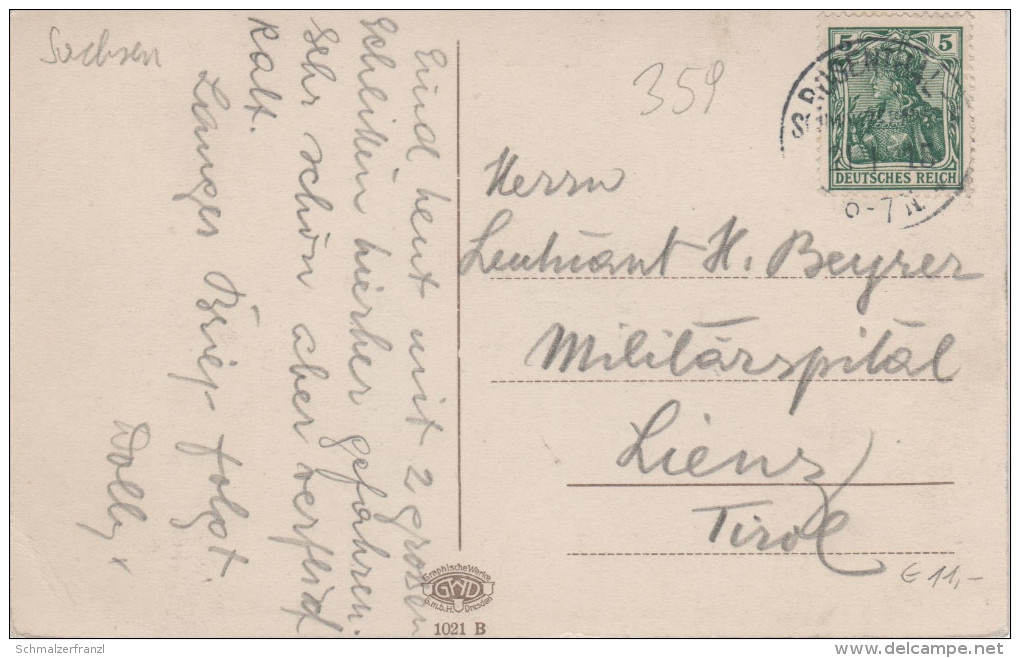 Sachsen
359
Sind heut mit 2 großen
Schlitten hierher gefahren.
Sehr schön aber verflixt
kalt.
Langer Brief folgt.
Dolly
5 5
DEUTSCHES REICH
6-7 N.
Herrn
Leutnant H. Beyrer
Militärspital
Lienz
Tirol
€ 11,-
Graphische Werke
GWD
G.m.b.H. Dresden
1021 B
Schmalzerfranzl
delcampe.net